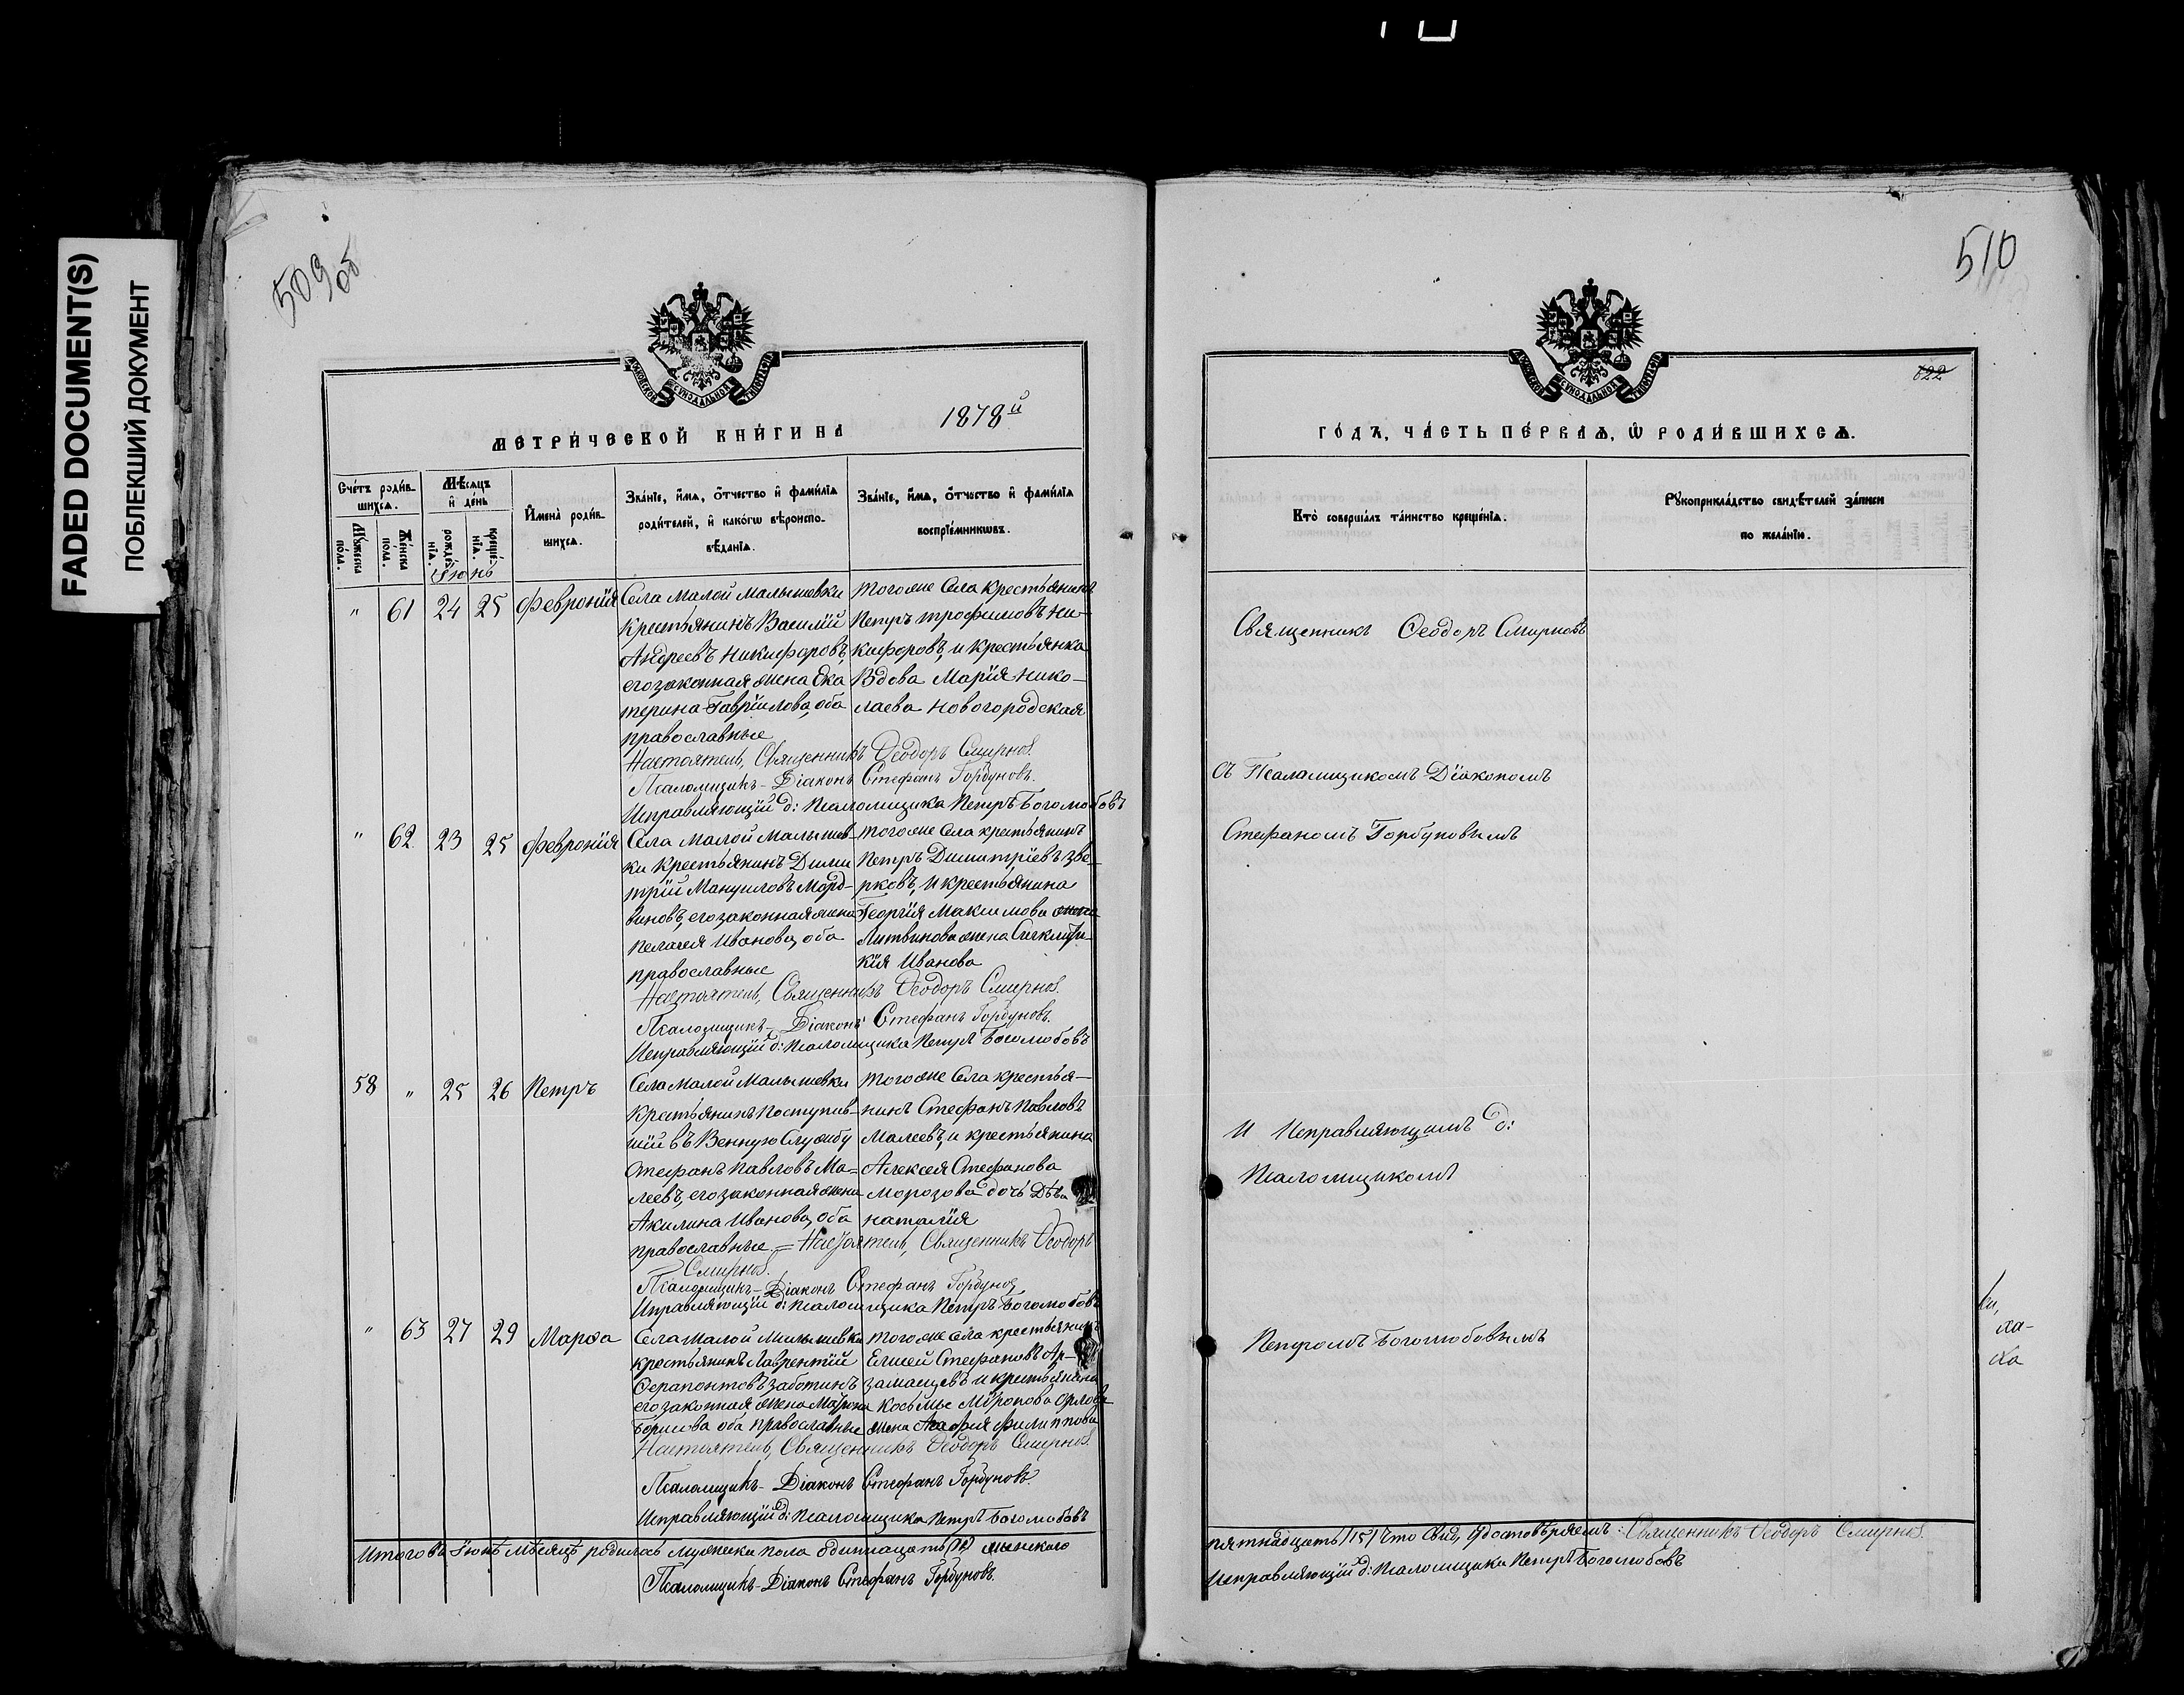 FADED DOCUMENT(S)
ПОБЛЕКШИЙ ДОКУМЕНТ
509 об
МОСКОВСКОЙ СѴНОДАЛЬНОЙ ТИПОГРАФІИ
МЕТРИ́ЧЕСКОЙ КНИ́ГИ НА 1878й
Сче́тъ роди́в-
шихсѧ.
Мꙋ́жеска
по́ла.
Же́нска
пола.
Мѣ́сѧцъ
и҆ де́нь
рожде́-
нїѧ.
креще́-
нїѧ.
Іюнь
И҆мена̀ роди́в-
шихсѧ.
Зва́нїе, и҆́мѧ, ѻ҆́тчество и҆ фами́лїѧ
роди́телей, и҆ како́гѡ вѣроиспо-
вѣ́данїѧ.
Зва́нїе, и҆́мѧ, ѻ҆́тчество и҆ фами́лїѧ
воспрїе́мникѡвъ.
" 61 24 25 Февронїя
Села Малой Малышевки
Крестьянинъ Василій
Андреевъ Никифоровъ,
его законная жена Ека
терина Гаврїилова, оба
православные
Тогоже Села Крестьянинъ
Петръ Трофимовъ Ни-
кифоровъ, и Крестьянка
Вдова Марїя Нико-
лаева Новогородская
Настоятель, Священникъ Ѳеодоръ Смирнов.
Псаломщикъ- Діаконъ Стефанъ Горбуновъ.
Исправляющїй д: псаломщика Петръ Боголюбовъ
" 62 23 25 Февронїя
Села Малой Малышев-
ки Крестьянинъ Дими
трїй Мануиловъ Морд-
виновъ, его законная жена
Пелагея Иванова, оба
православные
Тогоже Села крестьянинъ
Петръ Димитрїевъ Зве-
рковъ, и крестьянина
Георгїя Максимова жена
Литвинова жена
кїя Иванова
Настоятель, Священникъ Ѳеодоръ Смирнов.
Псаломщикъ- Діаконъ Стефанъ Горбуновъ.
Исправляющїй д: псаломщика Петръ Боголюбовъ
58 " 25 26 Петръ
Села Малой Малышевки
Крестьянинъ Поступив-
шїй въ Венную Службу
Стефанъ Павловъ Ма-
леевъ, его законная жена
Акилина Иванова, оба
православные
Тогоже Села крестья-
нинъ Стефанъ Павловъ
Малеевъ, и крестьянина
Алексея Стефанова
Морозова дочь Дѣва
Наталїя
= Настоятель, Священникъ Ѳеодоръ
Смирнов.
Псаломщикъ- Діаконъ Стефанъ Горбунов
Управляющїй д: псаломщика Петръ Боголюбовъ
" 63 27 29 Марѳа
Села Малой Малышевки
крестьянинъ Лаврентїй
Ѳерапонтовъ Заботинъ
его законная жена Матрона
Борисова оба православные
Тогоже Села крестьянинъ
Елисей Стефановъ Ар-
замасцевъ и крестьянина
Косьмы Миронова Орлова
жена Агафия Филиппова
Настоятель, Священникъ Ѳеодоръ Смирнов.
Псаломщикъ- Діаконъ Стефанъ Горбуновъ.
Исправляющїй д: псаломщика Петръ Боголюбовъ
Итого въ Іюнѣ мѣсяцѣ родилось мужеска пола одиннадцать женского
Псаломщикъ-Діаконъ Стефанъ Горбуновъ.
510
622
МОСКОВСКОЙ СѴНОДАЛЬНОЙ ТИПОГРАФІИ
ГО́ДЪ, ЧА́СТЬ ПЕ́РВАѦ, Ѡ҆ РОДИ́ВШИХСѦ.
Кто̀ соверша́лъ та́инство креще́нїѧ.
Рꙋкоприкла́дство свидѣ́телей за́писи
по жела́нїю.
Священникъ Ѳеодоръ Смирновъ
съ Псаломщикомъ Дїакономъ
Стефаномъ Горбуновымъ
и Исправляющимъ д:
псаломщикомъ
Петромъ Боголюбовымъ
пятнадцать (15) Что Свид, удостовѣряемъ: Священникъ Ѳеодоръ Смирнов.
Исправляющїй д: псаломщика Петръ Боголюбовъ